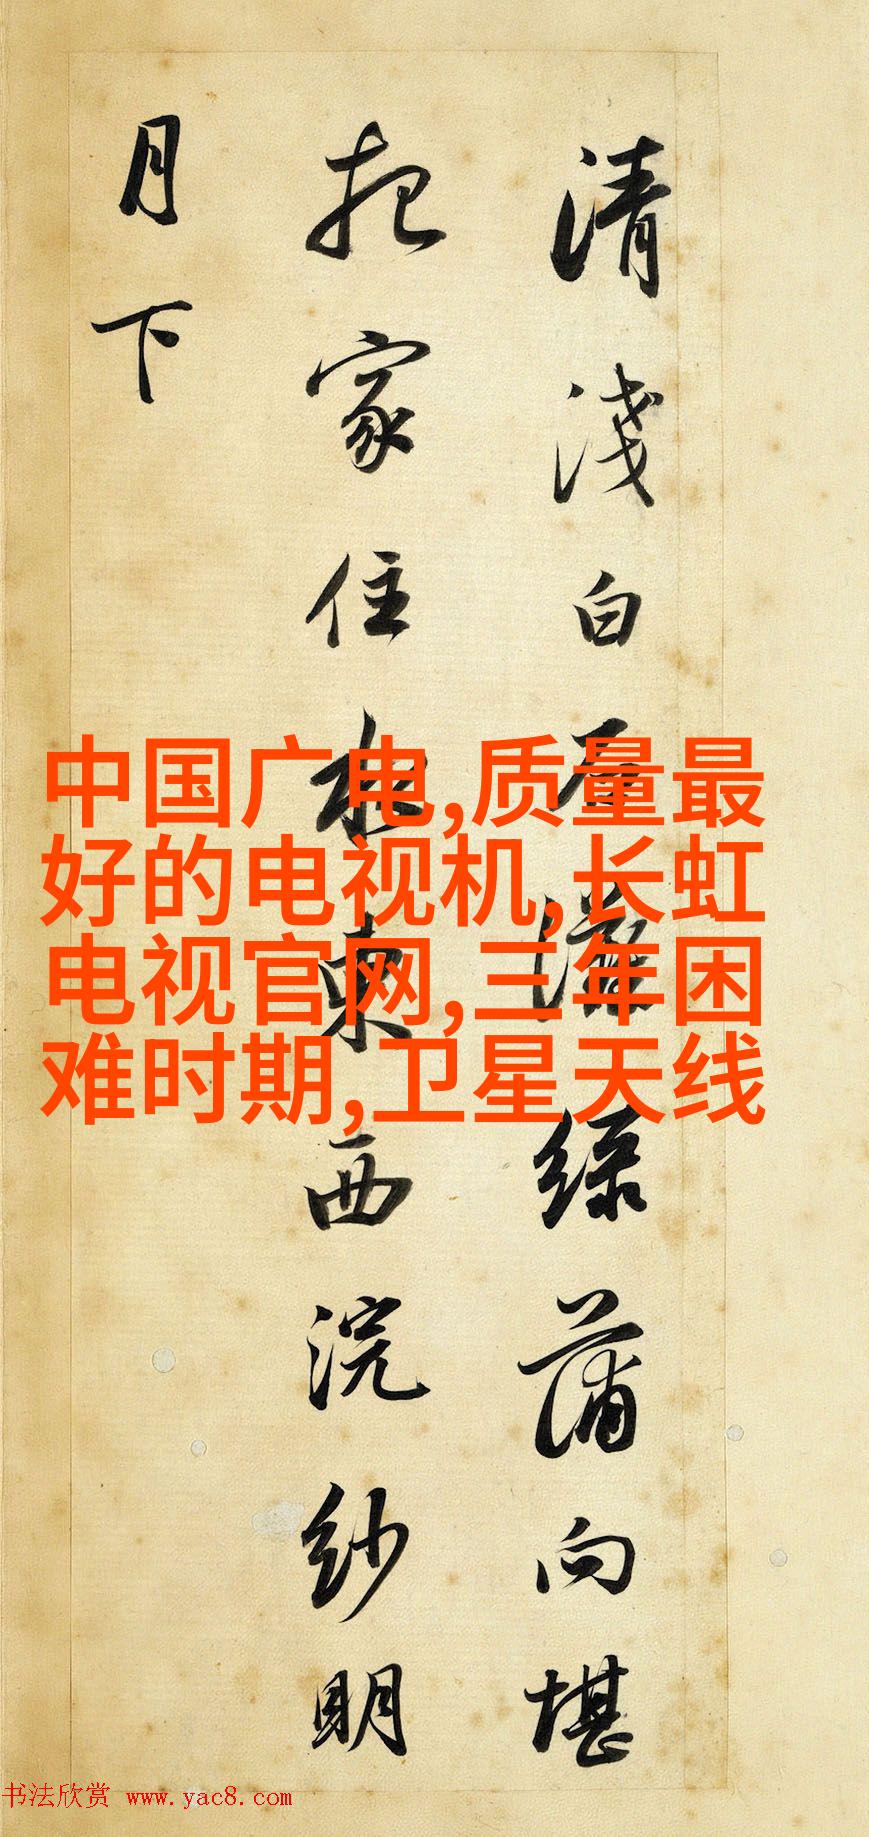 清淺白石灘綠蒲向堪
把家住水東西浣紗明
月下
中国广电,质量最
好的电视机,长虹
电视官网,三年困
难时期,卫星天线
书法欣赏 www.yac8.com